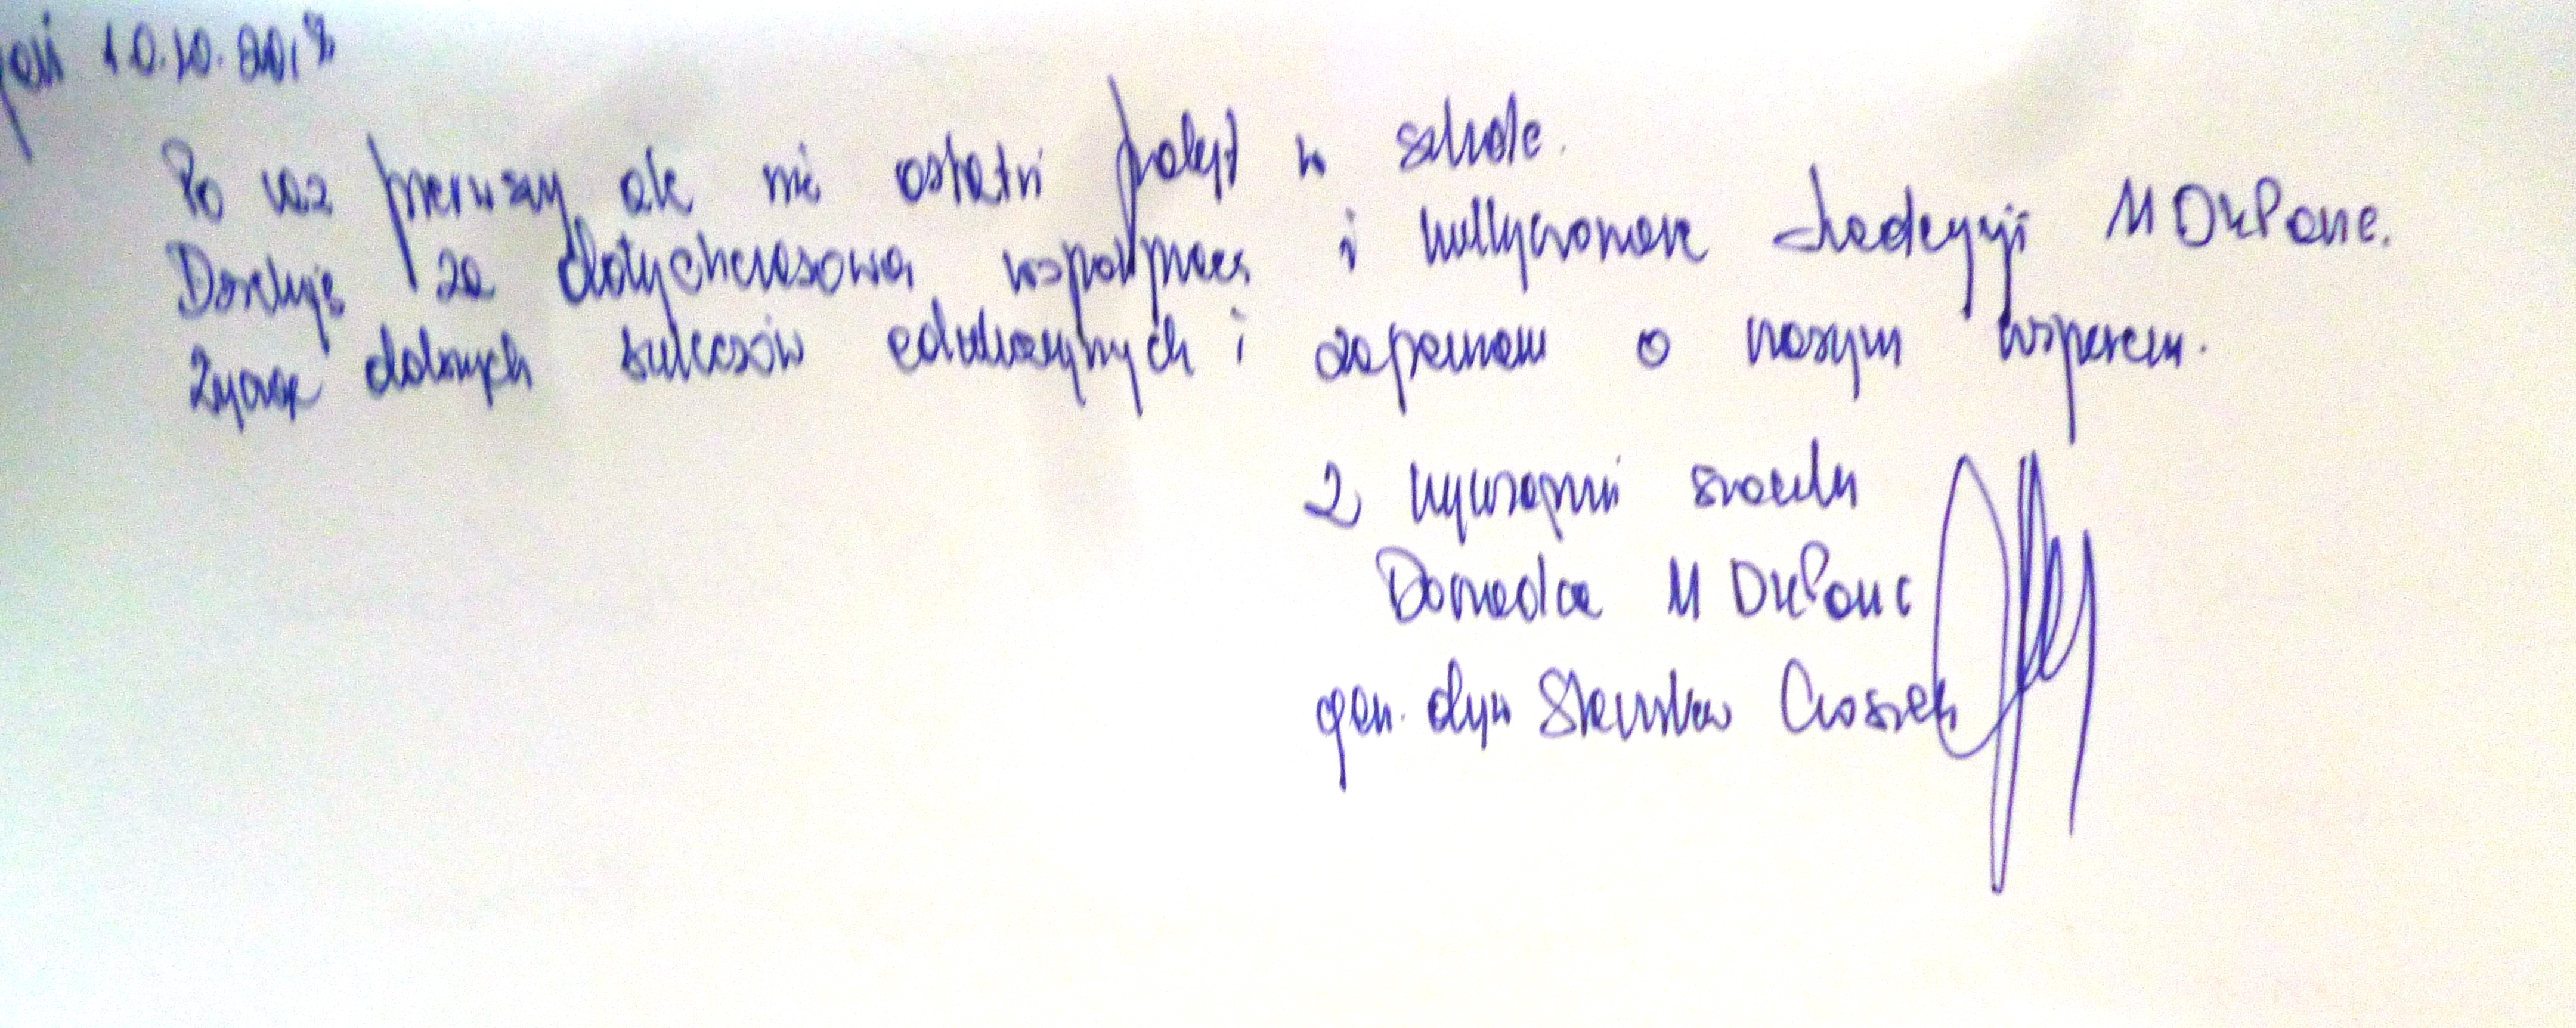 10.10.2018
Po raz pierwszy ale nie ostatni pobyt w szkole.
Dziękuję za dotychczasową współpracę i kultywowanie tradycji 11 DKPanc.
Życzę dalszych sukcesów edukacyjnych i zapewniam o naszym wsparciu.
Z wyrazami szacunku
Dowódca 11 DKPanc
gen. dyw Stanisław Czosnek